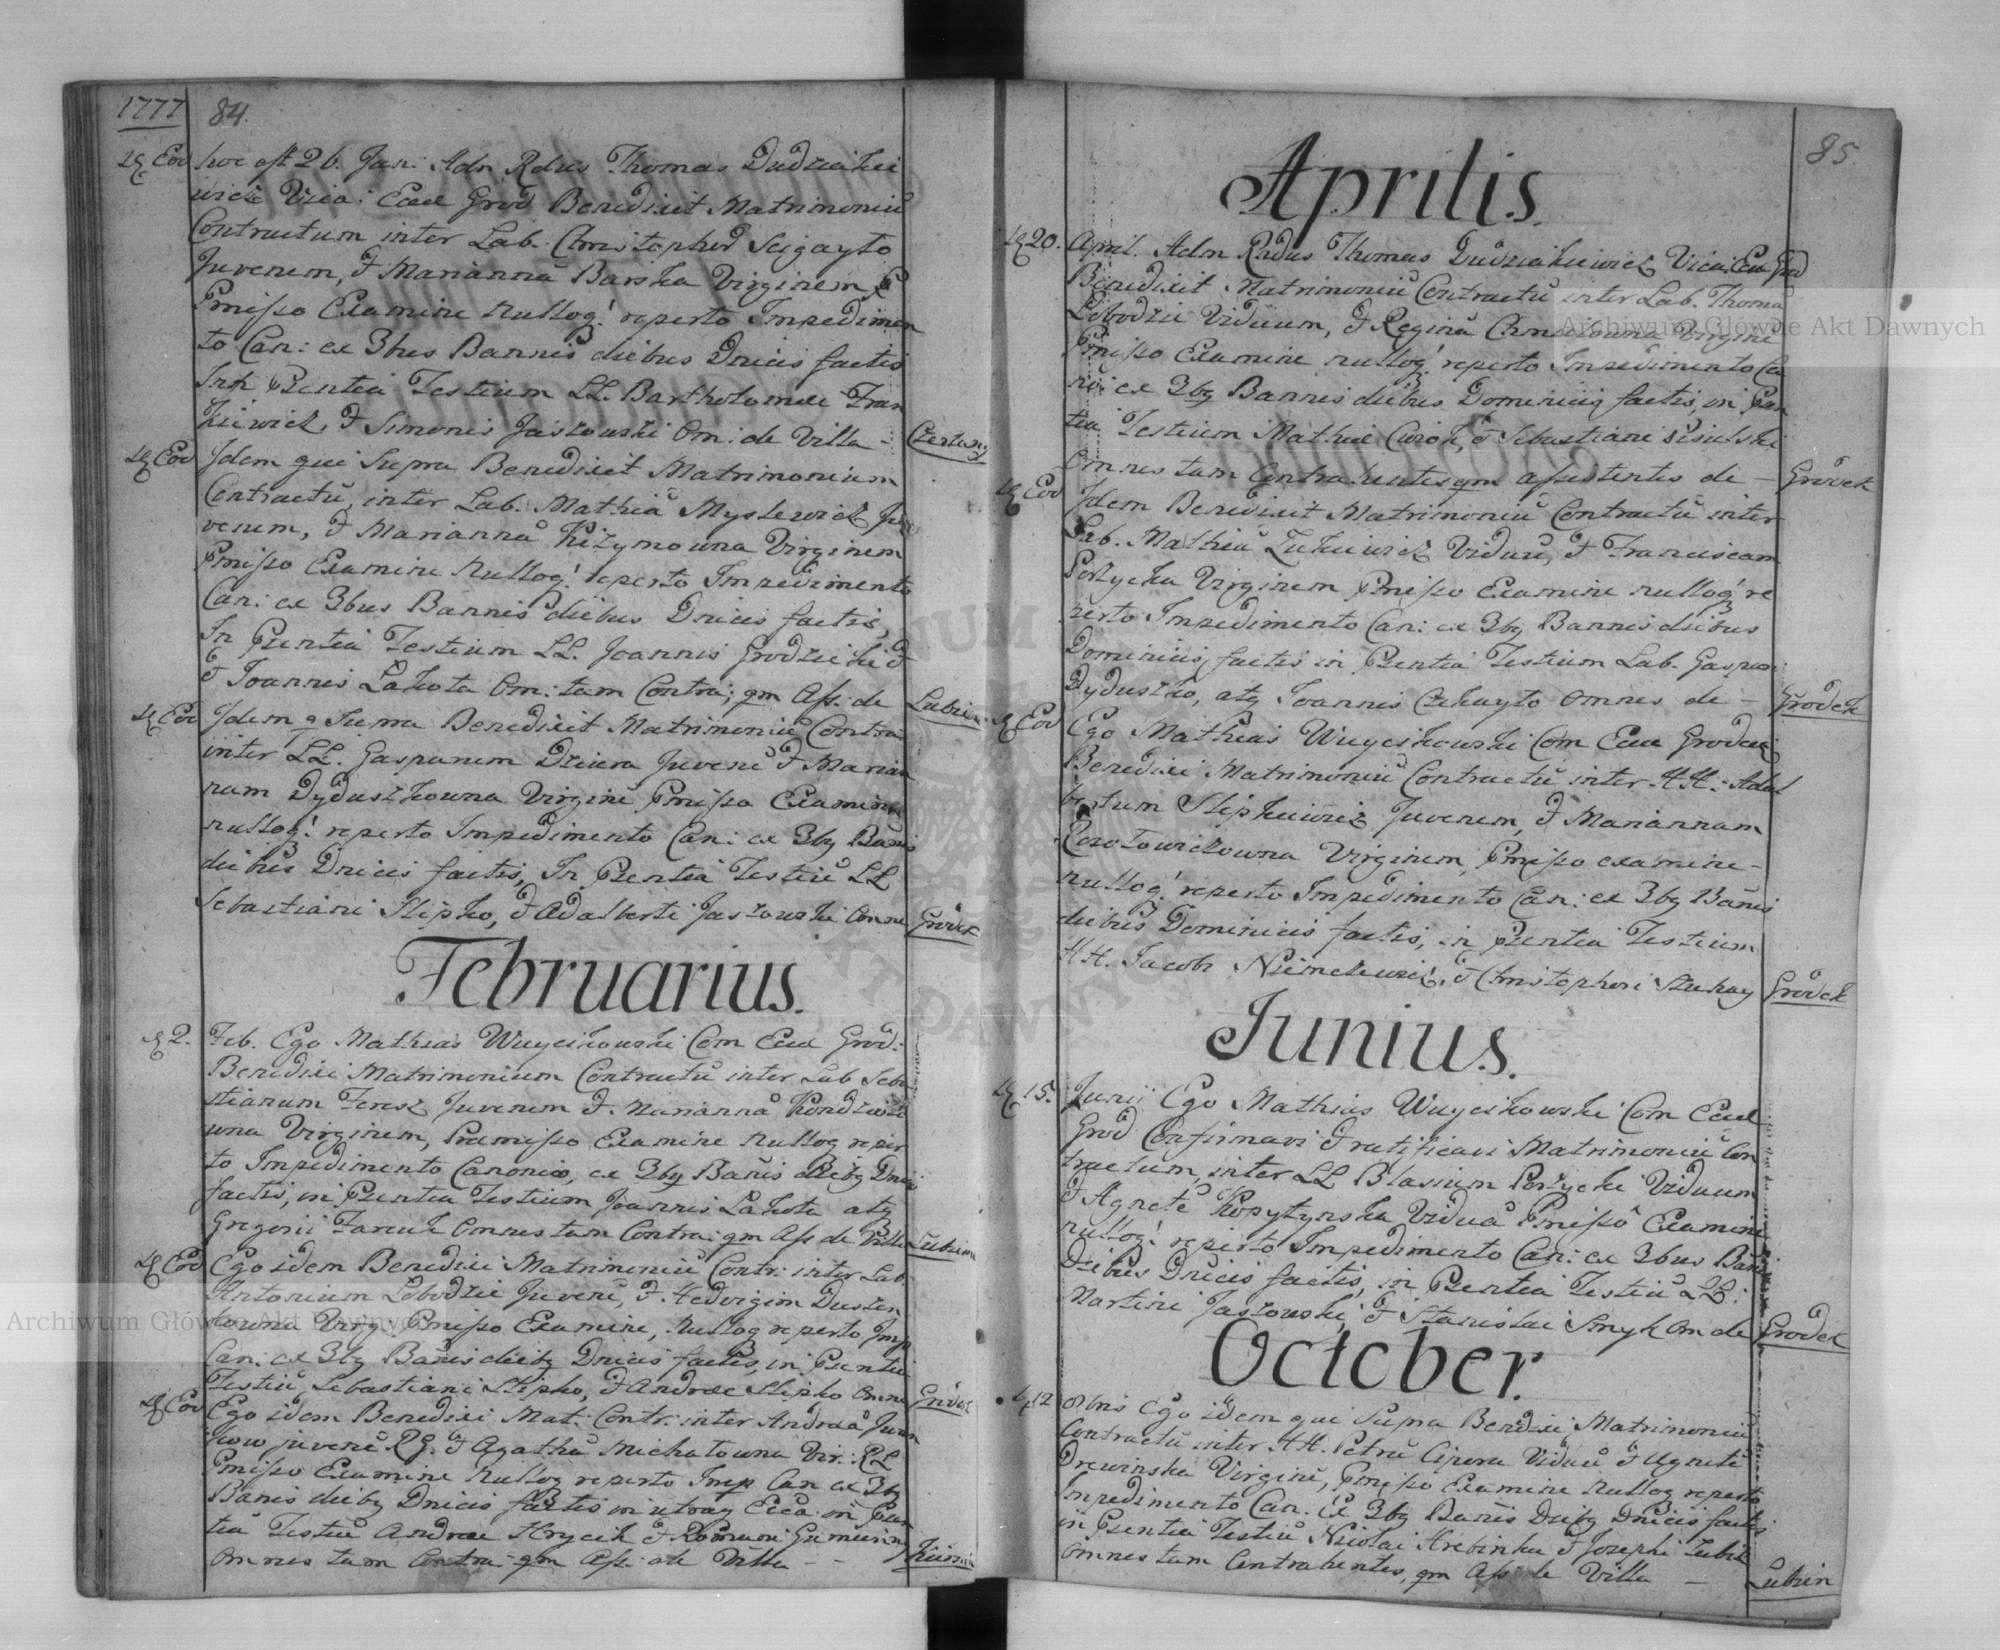 1777
84.
Eod hoc est 26. Jan: Adn Rdus Thomas Dudziakie
wicz Vica: Eccl Grod Benedixit Matrimoniu
Contractum inter Lab. Christopherū Scigayło
Juvenem, & Mariannā Barska Virginem
Pmisso Examine nulloq! reperto Impedimen
to Can: ex 3bus Bannis diebus Dnicis factis
Prentia Testium LL. Bartholomæi Fran
kiewicz, & Simonis Jaszowski Om: de Villa -
Eod Idem qui Supra Benedixit Matrimonium
Contractū inter Lab. Mathiā Myslewicz Ju
venem, & Mariannā Virginem
Pmisso Examine nulloq! reperto Impedimento
Can: ex 3bus Bannis diebus Dnicis factis,
In Prentia Testium LL. Joannis Grodzicki &
& Joannis Lakota Om: tam Contra: qm Ass: de Lubien
Eod Idem q Supra Benedixit Matrimoniū Contra
inter LL. Gasparum Dziura Juvenē & Marian
nam Dyduszkowna Virginē Pmisso Examine
nulloq! reperto Impedimento Can: ex 3bq Banis
diebus Dnicis factis, In Prentia Testiū LL
Sebastiani Slipko, & Adalberti Jaszowski Omne Grodek
Februarius.
2. Feb. Ego Mathias Wuycikowski Com Eccl Grod:
Benedixi Matrimonium Contractū inter Lab Seba
stianum Feresz Juvenem &. Mariannā
wna Virginem, Præmisso Examine nulloq reper
to Impedimento Canonico, ex 3bq Banis diebq Dnici
factis, in Prentia Testium Joannis Lakota atq
Gregorii Omnes tam Contra: qm Ass de Villa Lubien
Eod Ego idem Benedixi Matrimoniū Contr: inter Lab
Antonium Lobodzic Juvenē, & Hedvigim Duszen
kowna Virg: Pmisso Examine, nulloq reperto Imp
Can: ex 3bq Banis diebq Dnicis factis, in Prentia
Testiū Sebastiani Slipko, & Andreæ Slipko Omne Grodek
Eod Ego idem Benedixi Mat: Contr: inter Andreā
juvenē RG. & Agathā Michałowna Vir: RL
Pmisso Examine nulloq reperto Imp Can ex 3bq
Banis diebq Dnicis factis in utraq Ecca in Pren
tia Testiū Andreæ Hrycek & Romani
Omnes tam Contra: qm Ass: de Villa - -
85.
Aprilis.
20. April. Adm Rndus Thomas Dudziakiewicz Vica: Ecc Grod
Benedixit Matrimoniū Contractū inter Lab. Thomā
Lobodzic Viduum, & Reginā Virginē
Pmisso Examine nulloq! reperto Impedimento Ca
noi: ex 3bq Bannis diebus Dominicis factis, in Pren
tia Testium Mathiæ & Sebastiani
Omnes tam Contrahentes qm assistentes de - Grodek
Eod Idem Benedixit Matrimoniū Contractū inter
Lab. Mathiā Lukiewicz Viduū, & Franciscam
Perzycka Virginem Pmisso Examine nulloq! re
perto Impedimento Can: ex 3bq Bannis diebus
Dominicis, factis in Prentia Testium Lab. Gaspari
Dyduszko, atq Joannis Czekayło Omnes de - Grodek
Eod Ego Mathias Wuycikowski Com Eccl Grodeci
Benedixi Matrimoniū Contractū inter HH: Adal
bertum Slipkiewicz Juvenem, & Mariannam
Virginem, Pmisso examine -
nulloq! reperto Impedimento Can: ex 3bq Banis
diebus Dominicis factis, in Prentia Testium
HH. Jacobi Niemczewicz, & Christopheri Grodek
Junius.
15. Junii Ego Mathias Wuycikowski Com Eccl
Grod Confirmavi & ratificavi Matrimoniū Con
tractum, inter LL Blasium Perzycki Viduum
& Agnetē Kopytynska Viduā Pmisso Examine
nulloq! reperto Impedimento Can: ex 3bus Bani
Diebus Dnicis factis, in Prentia Testiū LL:
Martini Jaszowski, & Stanislai Smyk Om de Grodek
October.
12 8bris Ego idem qui Supra Benedixi Matrimoniū
Contractū inter HH. Petrū Cipera Viduū & Agnetē
Drewinska Virginē, Pmisso Examine nulloq reperto
Impedimento Can. Ex 3bq Banis Diebq Dnicis factis
in Prentia Testiū Nicolai Hrebinka & Josephi Zubik
Omnes tam Contrahentes, qm Ass: de Villa - Lubien
Archiwum Główne Akt Dawnych
Archiwum Główne Akt Dawnych